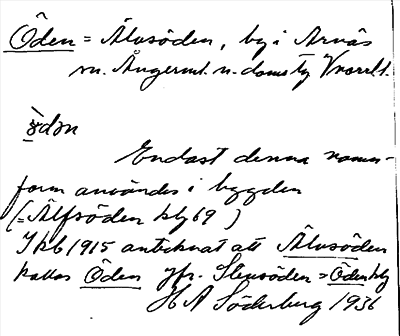 Öden = Älvsöden, by i Arnäs
sn. Ångerml. n. domsty Vnorrl.
Endast denna namn-
form användes i bygden
(= Älfsöden kbg 69)
I kb 1915 antecknat att Älvsöden
kallas Öden jfr. Stensöden = Öden kbg
H A Söderberg 1936